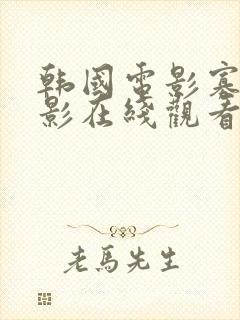 韩國電影寡
影在綫觀看
老馬先生